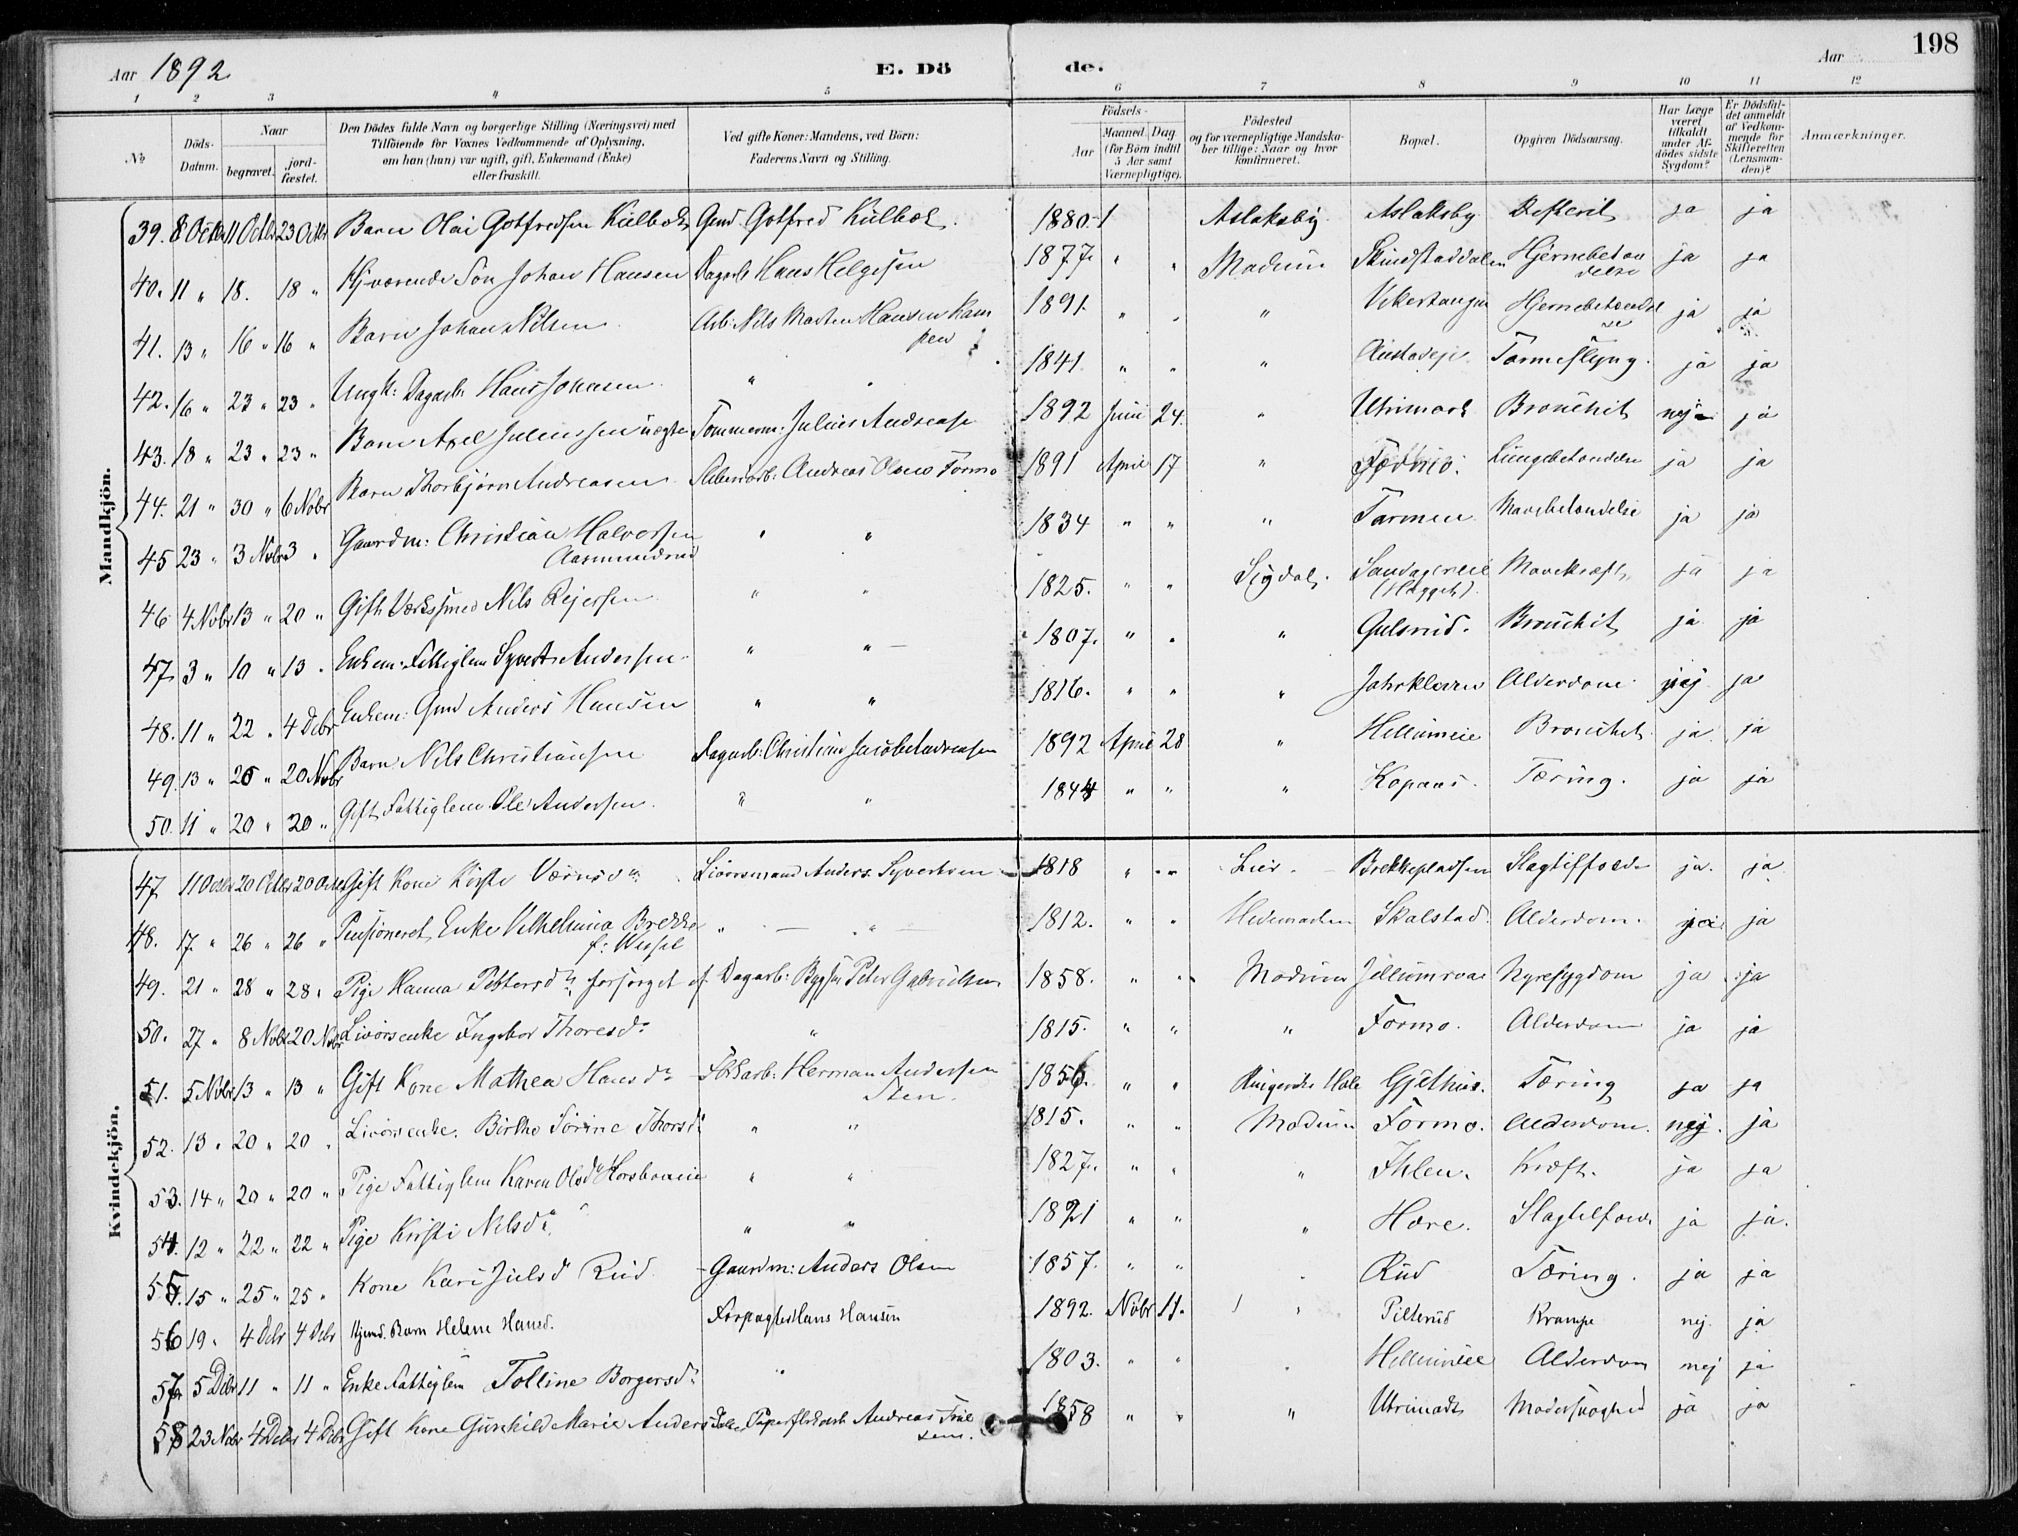 198
Aar 1892
E. Dö
de.
Aar
1 2 3 4 5 6 7 8 9 10 11 12
№
Döds-Datum.
Naar
begravet.
jord-fæstet.
Den Dödes fulde Navn og borgerlige Stilling (Næringsvei) med
Tilföiende for Voxnes Vedkommende af Oplysning,
om han (hun) var ugift, gift, Enkemand (Enke)
eller fraskilt.
Ved gifte Koner: Mandens, ved Börn:
Faderens Navn og Stilling.
Födsels-
Aar
Maaned. Dag.
(for Börn indtil
5 Aar samt
Værnepligtige).
Födested
og for værnepligtige Mandska-
ber tillige: Naar og hvor
konfirmeret.
Bopæl.
Opgiven Dödsaarsag.
Har Læge
været
tilkaldt
under Af-
dödes sidste
Sygdom?
Er Dödsfal-
det anmeldt
af Vedkom-
mende for
Skifteretten
(Lensman-
den)?
Anmærkninger.
Mandkjön.
39. 8 Octbr 11 Octbr 23 Octbr Barn Olai Gotfredsen Kulbæk Gmd. Gotfred Kulbæk. 1880 Aslaksby Aslaksby Difterit ja ja
40. 11 " 18. 18 " Hjværende Søn Johan Hansen Dagarb. Hans Helgesen 1877. " " Modum Hjernebetændelse ja ja
41. 13 " 16 " 16 " Barn Johan Nilsen Arb: Nils Morten Hansen Kampen 1891. " " " Vikertangen Hjernebetændelse ja ja
42. 16 " 23 " 23 " Ungk: Dagarb. Hans Johnsen " " 1841 " " " Tarmeslyng. ja ja
43. 18 " 23 " 23 " Barn Axel Juliussen uægte Tømmerm: Julius Andreasen 1892 Juni 24. " Utrimark Bronchit nej ja
44. 21 " 30 " 6 Nobr Barn Thorbjørn Andreasen Andreas Olsen Formo 1891 April 17 " Formo. Lungebetændelse ja ja
45 23 " 3 Nobr 3 " Gaardm: Christian Halvorsen Aasmundrud " " 1834 " " " Tarmen Mavebetændelse ja ja
46 4 Nobr 13 " 20 " Gift Værkssmed Nils Reiersen " " 1825. " " Sigdal. Mavekræft ja ja
47. 3 " 10 " 13 " Enkem: Fattiglem Syvert Andersen " " 1807. " " " Gulsrud. Bronchit ja ja
48. 11 " 22 " 4 Debr Enkem: Gmd Anders Hansen " " 1816. " " " Alderdom nej ja
49. 13 " 20 Nobr Barn Nils Christiansen Dagarb: Christian Jacob Andreasen 1892 April 28 " Hellumeie Bronchit ja ja
50. 11 " 20 " 20 " Gift Fattiglem Ole Andersen. " " 1844 " " " Kopaas. Tæring. ja ja
Kvindekjön.
47. 11 Octbr 20 Octbr 20 Octbr Gift Kone Kirsti Livørsmand Anders Syvertsen 1818 " " Lier Brekkepladsen ja ja
48. 17. " 26 " 26 " Pensioneret Enke Vilhelmina Brekke f: Wessel " " 1812. " " Hedemarken Skalstad. Alderdom. ja
49. 21 " 28 " 28 " Pige Hanna Pettersdr. forsørget af Dagarb: Peter Gabrielsen 1858. " " Modum Nyresygdom ja ja
50. 27 " 8 Nobr 20 Nobr Livørsenke Ingebor Thoresdr " 1815. " " " Formo. Alderdom ja ja
51. 5 Nobr 13 " 13 " Gift Kone Mathea Hansdr Herman Andersen Sten. 1856. " " Ringerike Hole Gjethus. Tæring ja ja
52. 13 " 20 " 20 " Livørsenke. Birthe Sörine Thorsdr " " 1815. " " Modum Formo. Alderdom. nej. ja
53. 14 " 20 " 20 " Pige Fattiglem Karen Olsdr " " 1827. " " " Ihlen. Kræft. ja ja
54. 12 " 22 " 22 " Pige Kirsti Nilsdr. " " 1821 " " " Hære. ja ja.
55. 15 " 25 " 25 " Kone Kari Julsd Rud Gaardm: Anders Olsen 1857. " " " Rud Tæring. ja ja
56 19 " 4 Debr 4 Debr Hjemd. Barn Helene Hansd. Forpagter Hans Hansen 1892. Nobr 11. " Pilterud Krampe nej. ja
57. 5 Debr 11 " 11 " Enke Fattiglem Tolline Borgersdr " 1803. " " " Hellumeie Alderdom nej ja
58 23 Nobr 4 Debr 4 Debr Gift Kone Gunhild Marie Andersd Andreas 1858 " " " Utrimark ja ja